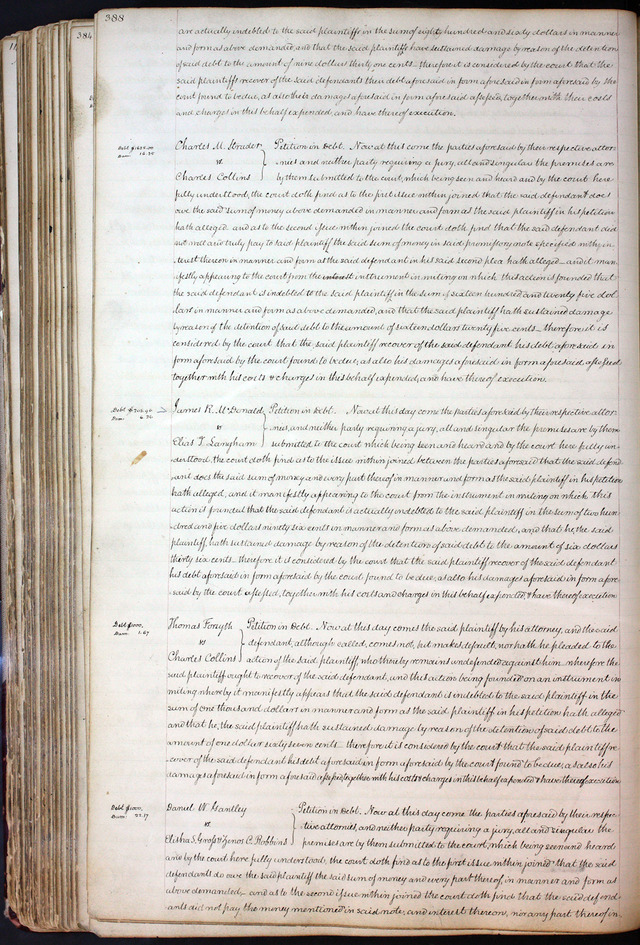 388
384
are actually indebted to the said plaintiffs in the sum of eight hundred and sixty dollars in manner
and form as above demanded, and that the said plaintiffs have sustained damage by reason of the detention
of said debt to the amount of nine dollars thirty one cents – therefore it is considered by the court that the
said plaintiffs recover of the said defendants their debt aforesaid in form aforesaid in form aforesaid by the
court found to be due, as also their damages aforesaid in form aforesaid assessed, together with their costs
and charges in this behalf expended, and have thereof execution.
Debt $1625.00
Dam: 16.25
Charles M. Strader
vs
Charles Collins
Petition in Debt. Now at this come the parties aforesaid by their respective attor-
nies and neither party requiring a jury, all and singular the premises are
by them submitted to the court, which being seen and heard and by the court here
fully understood, the court doth find as to the first issue within joined that the said defendant does
owe the said sum of money above demanded in manner and form as the said plaintiff in his petition
hath alleged. and as to the second issue within joined the court doth find that the said defendant did
not well and truly pay to said plaintiff the said sum of money in said promissory note specified with in-
terest thereon in manner and form as the said defendant in his said second plea hath alleged – and it man-
ifestly appearing to the court from the interest instrument in writing on which this action is founded that
the said defendant is indebted to the said plaintiff in the sum of sixteen hundred and twenty five dol-
lars in manner and form as above demanded, and that the said plaintiff hath sustained damage
by reason of the detention of said debt to the amount of sixteen dollars twenty five cents – therefore it is
considered by the court that the said plaintiff recover of the said defendant his debt aforesaid in
form aforesaid by the court found to be due, as also his damages aforesaid in form aforesaid assessed
together with his costs & charges in this behalf expended, and have thereof execution.
Debt $205.96
Dam: 6.36
James R. McDonald
vs
Elias T. Langham
Petition in Debt. Now at this day come the parties aforesaid by their respective attor-
nies, and neither party requiring a jury, all and singular the premises are by them
submitted to the court which being seen and heard and by the court here fully un-
derstood, the court doth find as to the issue within joined between the parties aforesaid that the said defend-
ant does the said sum of money and every part thereof in manner and form as the said plaintiff in his petition
hath alleged, and it manifestly appearing to the court from the instrument in writing on which this
action is founded that the said defendant is actually indebted to the said plaintiff in the sum of two hun-
dred and five dollars ninety six cents in manner and form as above demanded, and that he, the said
plaintiff, hath sustained damage by reason of the detention of said debt to the amount of six dollars
thirty six cents – therefore it is considered by the court that the said plaintiff recover of the said defendant
his debt aforesaid in form aforesaid by the court found to be due, as also his damages aforesaid in form afore-
said by the court assessed, together with his costs and charges in this behalf expended, & have thereof execution
Debt $1000.
Dam: 1.67
Thomas Forsyth
vs
Charles Collins
Petition in Debt. Now at this day comes the said plaintiff by his attorney, and the said
defendant, although called, comes not, but makes default, nor hath he pleaded to the
action of the said plaintiff, who thereby remains undefended against him, wherefore the
said plaintiff ought to recover of the said defendant, and this action being founded on an instrument in
writing whereby it manifestly appears that the said defendant is indebted to the said plaintiff in the
sum of one thousand dollars in manner and form as the said plaintiff in his petition hath alleged
and that he, the said plaintiff hath sustained damage by reason of the detention of said debt to the
amount of one dollar sixty seven cents – therefore it is considered by the court that the said plaintiff re-
cover of the said defendant his debt aforesaid in form aforesaid by the court found to be due, as also his
damages aforesaid in form aforesaid assessed, together with his costs & charges in this behalf expended & have thereof execution
Debt $1000.
Dam: 22.17
Daniel W. Gantley
vs
Elisha S. Gross & Zenos C. Robbins
Petition in Debt. Now at this day come the parties aforesaid by their respec-
tive attornies, and neither party requiring a jury, all and singular the
premises are by them submitted to the court, which being seen and heard
and by the court here fully understood, the court doth find as to the first issue within joined that the said
defendants do owe the said plaintiff the said sum of money and every part thereof, in manner and form as
above demanded, – and as to the second issue within joined the court doth find that the said defend-
ants did not pay the money mentioned in said note, and interest thereon, nor any part thereof in